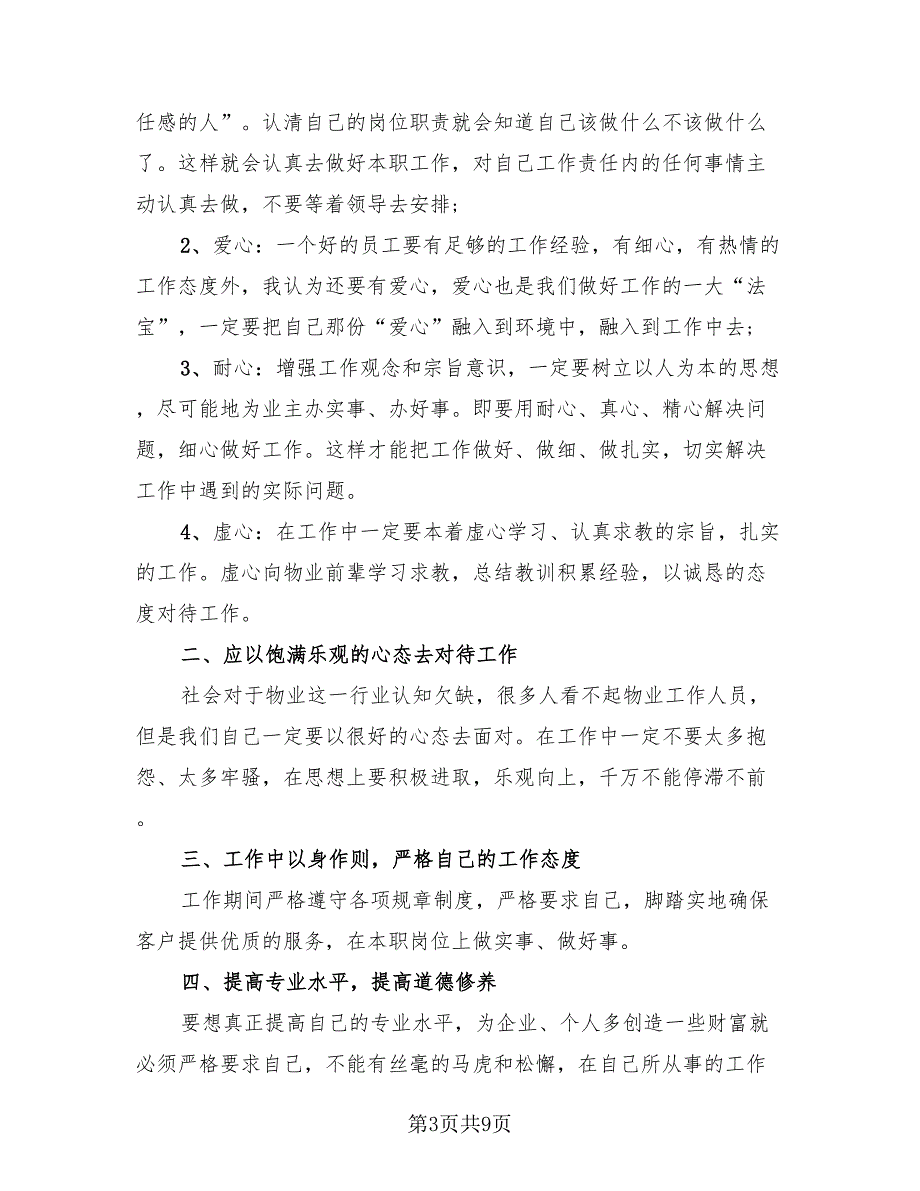 任感的人”。认清自己的岗位职责就会知道自己该做什么不该做什么
了。这样就会认真去做好本职工作，对自己工作责任内的任何事情主
动认真去做，不要等着领导去安排;
2、爱心：一个好的员工要有足够的工作经验，有细心，有热情的
工作态度外，我认为还要有爱心，爱心也是我们做好工作的一大“法
宝”，一定要把自己那份“爱心”融入到环境中，融入到工作中去;
3、耐心：增强工作观念和宗旨意识，一定要树立以人为本的思想
，尽可能地为业主办实事、办好事。即要用耐心、真心、精心解决问
题，细心做好工作。这样才能把工作做好、做细、做扎实，切实解决
工作中遇到的实际问题。
4、虚心：在工作中一定要本着虚心学习、认真求教的宗旨，扎实
的工作。虚心向物业前辈学习求教，总结教训积累经验，以诚恳的态
度对待工作。
二、应以饱满乐观的心态去对待工作
社会对于物业这一行业认知欠缺，很多人看不起物业工作人员，
但是我们自己一定要以很好的心态去面对。在工作中一定不要太多抱
怨、太多牢骚，在思想上要积极进取，乐观向上，千万不能停滞不前
。
三、工作中以身作则，严格自己的工作态度
工作期间严格遵守各项规章制度，严格要求自己，脚踏实地确保
客户提供优质的服务，在本职岗位上做实事、做好事。
四、提高专业水平，提高道德修养
要想真正提高自己的专业水平，为企业、个人多创造一些财富就
必须严格要求自己，不能有丝毫的马虎和松懈，在自己所从事的工作
第3页共9页